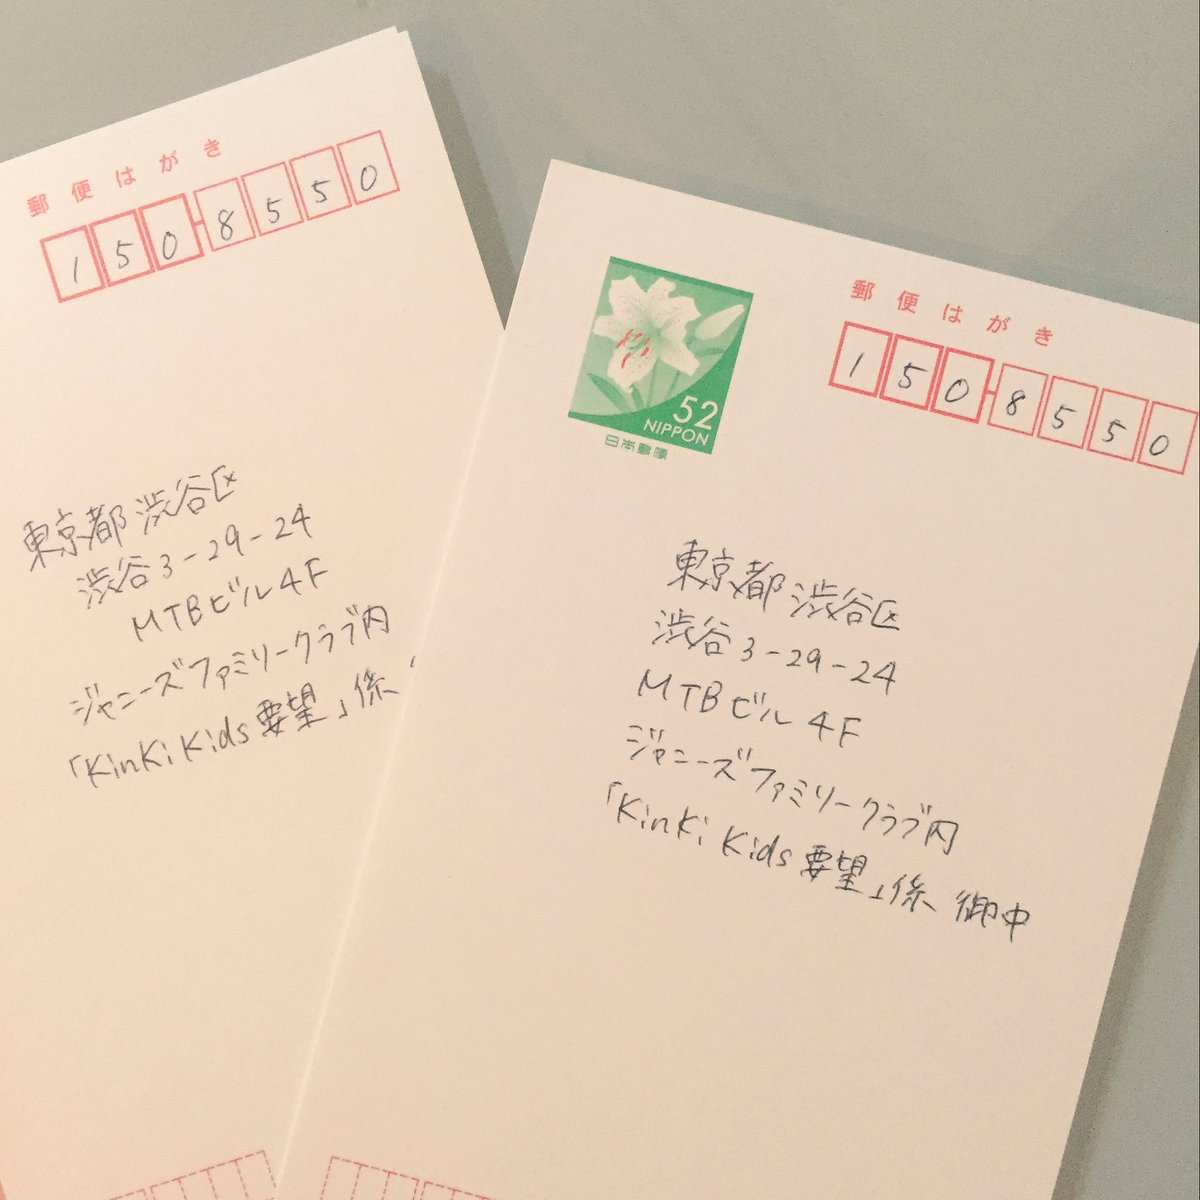 郵便はがき
1508550
東京都渋谷区
渋谷3-29-24
MTBビル4F
ジャニーズファミリークラブ内
「KinKi Kids要望」係
郵便はがき
1508550
52
NIPPON
日本郵便
東京都渋谷区
渋谷3-29-24
MTBビル4F
ジャニーズファミリークラブ内
「KinKi Kids要望」係 御中